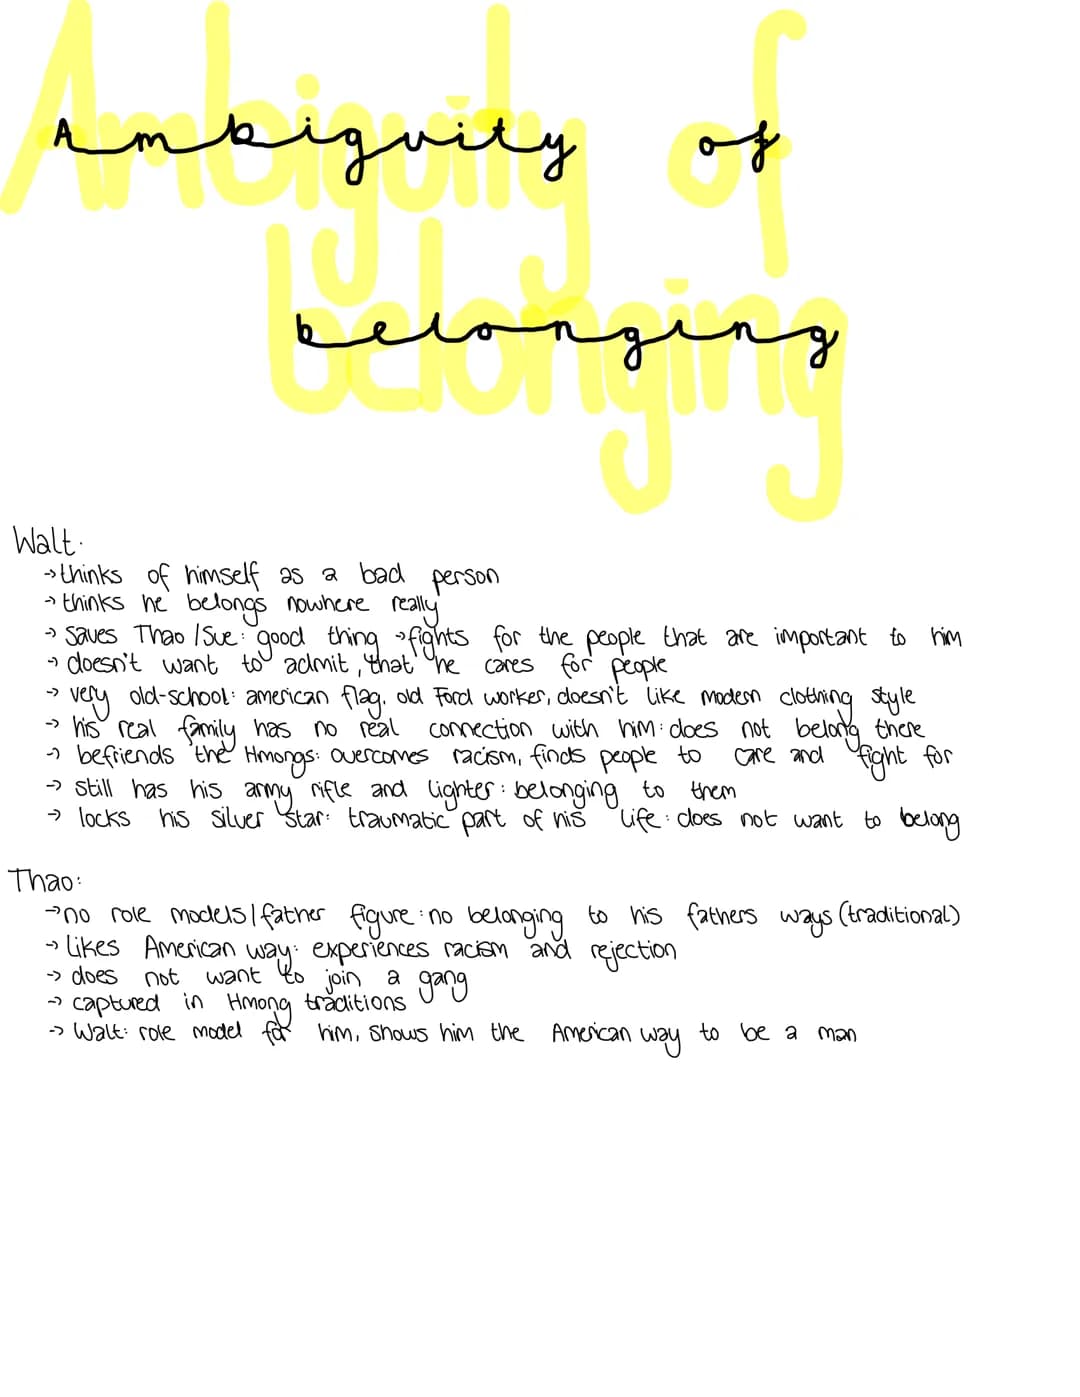 Ambiguity of
belonging
Walt:
→ thinks of himself as a bad person
→ thinks he belongs nowhere really
→ Saves Thao / Sue: good thing → fights for the people that are important to him
→ doesn't want to admit, that he cares for people
→ very old-school: american flag, old Ford worker, doesn't like modern clothing style
→ his real family has no real connection with him: does not belong there
→ befriends the Hmongs: overcomes racism, finds people to care and fight for
→ still has his army rifle and lighter: belonging to them
→ locks his silver star: traumatic part of his life: does not want to belong
Thao:
→ no role models / father figure: no belonging to his fathers ways (traditional)
→ likes American way: experiences racism and rejection
→ does not want to join a gang
→ captured in Hmong traditions
→ Walt: role model for him, shows him the American way to be a man